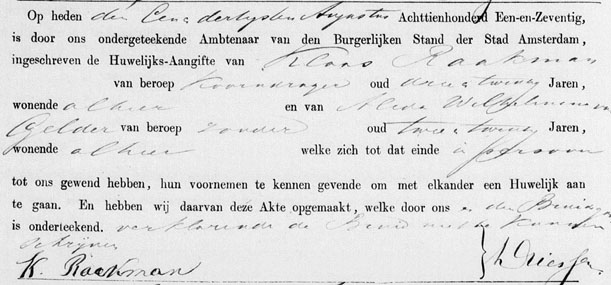 Op heden den Een & dertigsten Augustus Achttienhonderd Een-en-Zeventig,
is door ons ondergeteekende Ambtenaar van den Burgerlijken Stand der Stad Amsterdam,
ingeschreven de Huwelijks-Aangifte van Klaas Raakman
van beroep Korendrager oud drie & twintig Jaren,
wonende alhier en van Alida Wilhelmina van
Gelder van beroep zonder oud twee & twintig Jaren,
wonende alhier welke zich tot dat einde in persoon
tot ons gewend hebben, hun voornemen te kennen gevende om met elkander een Huwelijk aan
te gaan. En hebben wij daarvan deze Akte opgemaakt, welke door ons en den Bruidegom
is onderteekend. verklarende de Bruid niet te kunnen
schrijven
K. Raakman